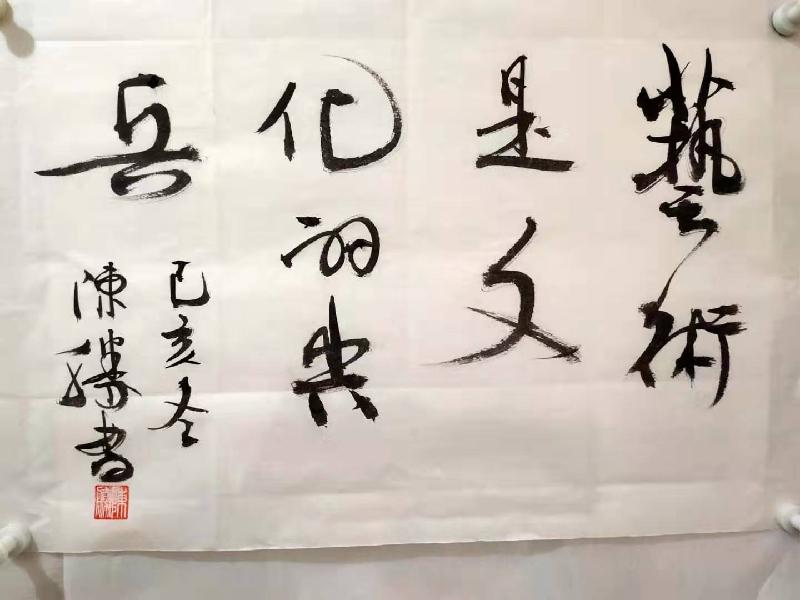 藝術
是文
化的
兵
己亥冬
陳勝書